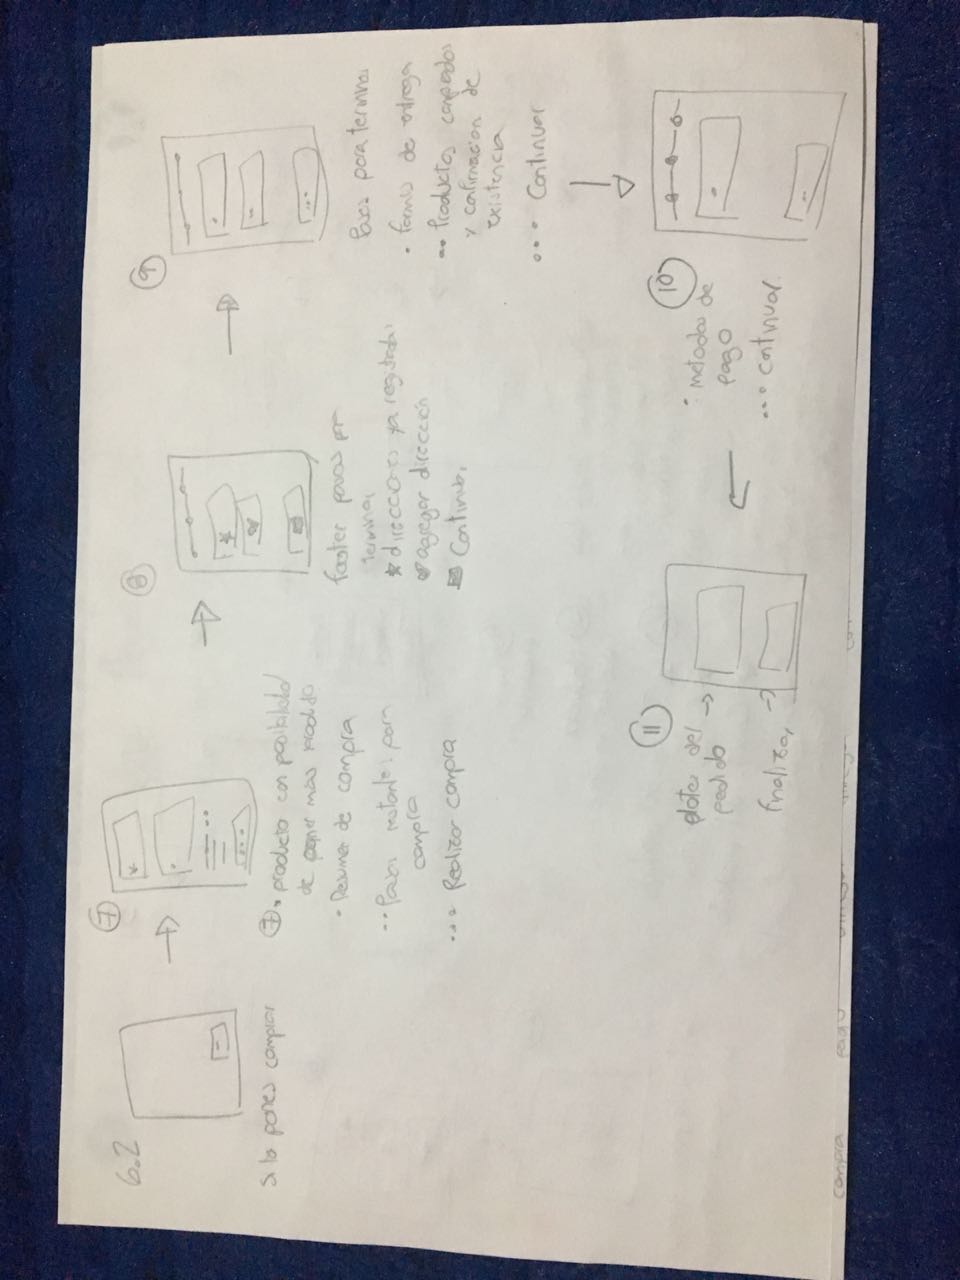 6.2
Si le pones comprar
7
7 * producto con posibilidad
de poner mas
• Resumen de compra
•• Pasos restantes para
compra
••• Realizar compra
8
footer pasos por
terminar
* direcciones ya registradas
♡ agregar dirección
Continuar
9
Pasos para terminar
• forma de entrega
•• Productos comprados
y confirmación de
existencia
••• Continuar
10
• Metodos de
pago
••• continuar.
11
datos del
pedido
finalizar
compra
pago